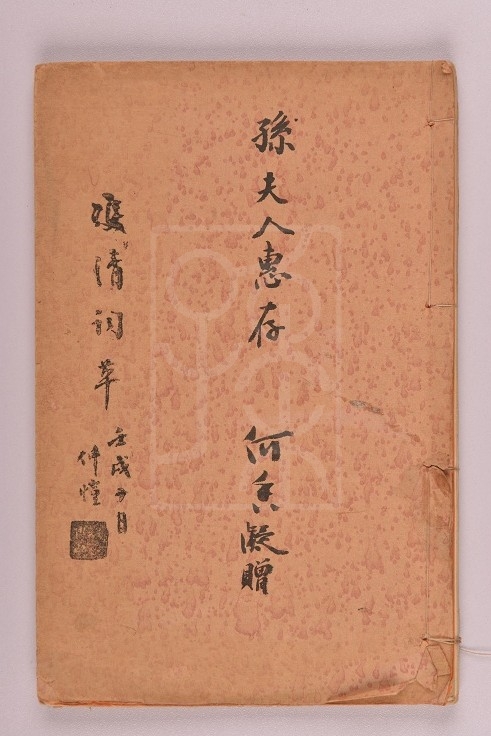 孫夫人惠存 何香凝贈
雙清詞草
壬戌六月
仲愷